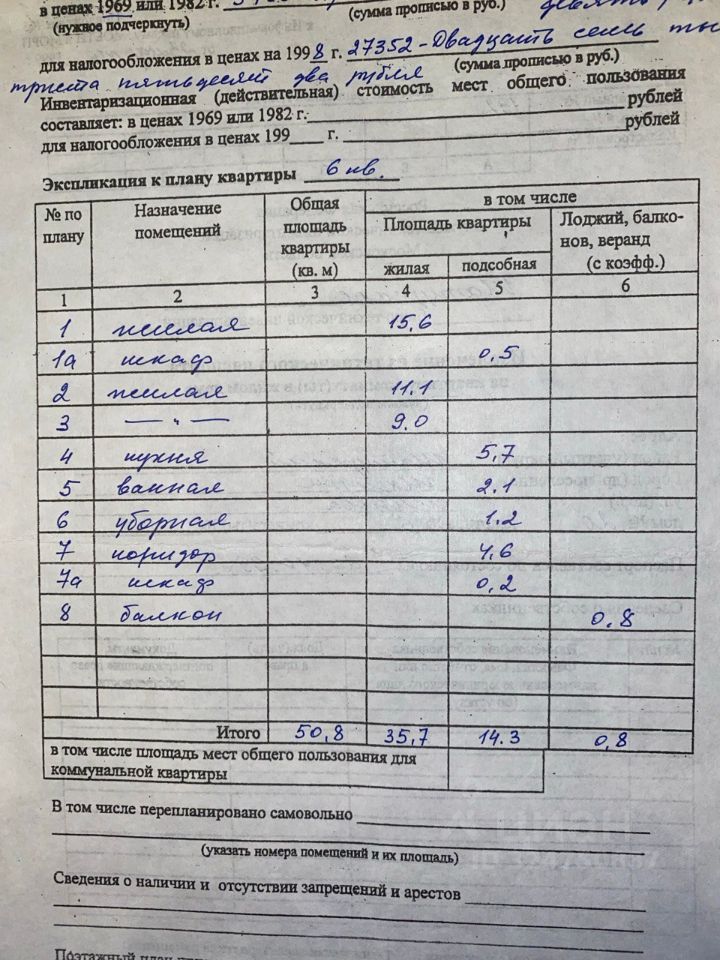 в ценах 1969 или 1982 г.
(нужное подчеркнуть) (сумма прописью в руб.)
для налогообложения в ценах на 1998 г. 27352 - Двадцать семь ты
триста пятьдесят два рубля (сумма прописью в руб.)
Инвентаризационная (действительная) стоимость мест общего пользования
составляет: в ценах 1969 или 1982 г. рублей
для налогообложения в ценах 199 г. рублей
Экспликация к плану квартиры 6 кв.
№ по плану Назначение помещений Общая площадь квартиры (кв. м) в том числе
Площадь квартиры Лоджий, балко-нов, веранд (с коэфф.)
жилая подсобная
1 2 3 4 5 6
1 жилая 15,6
1а шкаф 0,5
2 жилая 11.1
3 — " — 9.0
4 кухня 5,7
5 ванная 2.1
6 уборная 1.2
7 коридор 4,6
7а шкаф 0,2
8 балкон 0,8
Итого 50,8 35,7 14.3 0,8
в том числе площадь мест общего пользования для
коммунальной квартиры
В том числе перепланировано самовольно
(указать номера помещений и их площадь)
Сведения о наличии и отсутствии запрещений и арестов
Поэтажный план